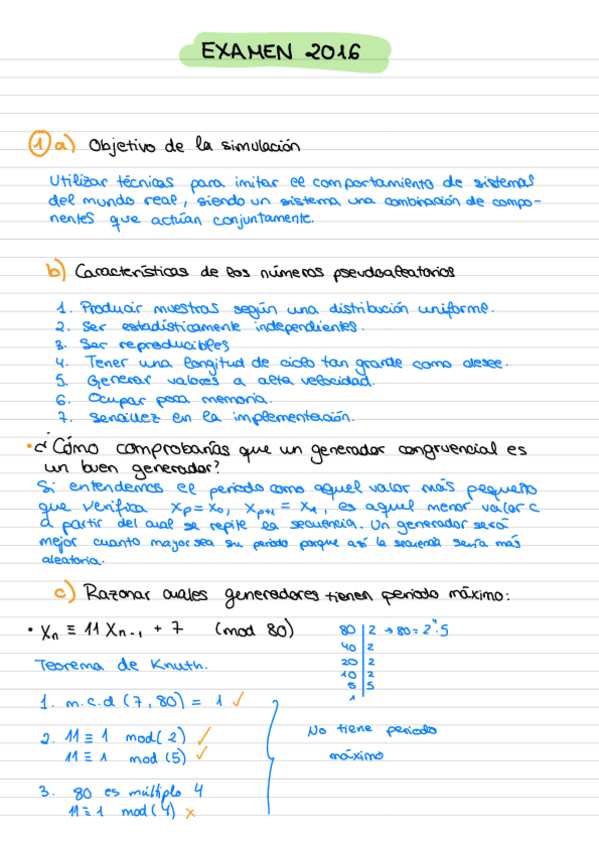 EXAMEN 2016
1 a) Objetivo de la simulación
Utilizar técnicas para imitar el comportamiento de sistemas
del mundo real, siendo un sistema una combinación de compo-
nentes que actúan conjuntamente.
b) Características de los números pseudoaleatorios
1. Producir muestras según una distribución uniforme.
2. Ser estadísticamente independientes.
3. Ser reproducibles
4. Tener una longitud de ciclo tan grande como desee.
5. Generar valores a alta velocidad.
6. Ocupar poca memoria.
7. Sencillez en la implementación.
• ¿Cómo comprobarías que un generador congruencial es
un buen generador?
Si entendemos el periodo como aquel valor más pequeño
que verifica Xp = X0, Xp+1 = X1, es aquel menor valor c
a partir del cual se repite la secuencia. Un generador será
mejor cuanto mayor sea su periodo porque así la secuencia sería más
aleatoria.
c) Razonar cuales generadores tienen periodo máximo:
• Xn ≡ 11 Xn-1 + 7 (mod 80)
80 | 2 → 80 = 2⁴·5
40 | 2
20 | 2
10 | 2
5 | 5
1
Teorema de Knuth.
1. m.c.d (7, 80) = 1 ✓
2. 11 ≡ 1 mod(2) ✓
11 ≡ 1 mod (5) ✓
3. 80 es múltiplo 4
11 ≡ 1 mod(4) x
No tiene periodo
máximo